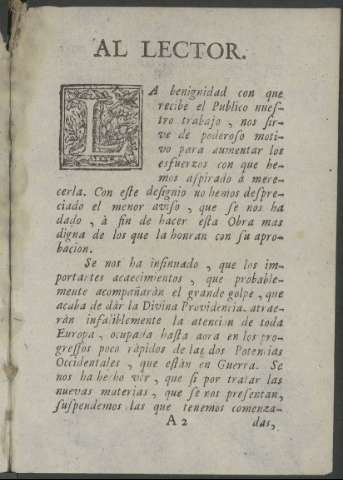 AL LECTOR.
LA benignidad con que
recibe el Publico nues-
tro trabajo , nos sir-
ve de poderoso moti-
vo para aumentar los
esfuerzos con que he-
mos aspirado à mere-
cerla. Con este designio no hemos despre-
ciado el menor aviso , que se nos ha
dado , à fin de hacer esta Obra mas
digna de los que la honran con su apro-
bacion.
Se nos ha insinuado , que los im-
portantes acaecimientos , que probable-
mente acompañaràn el grande golpe , que
acaba de dàr la Divina Providencia, atrae-
ràn infaliblemente la atencion de toda
Europa , ocupada hasta aora en los pro-
gressos poco ràpidos de las dos Potencias
Occidentales , que estàn en Guerra. Se
nos ha hecho vèr , que si por tratar las
nuevas materias , que se nos presentan,
suspendemos las que tenemos comenza-
A 2 das,